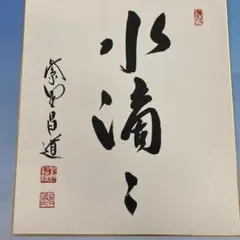 水滴〻
紫野昌道